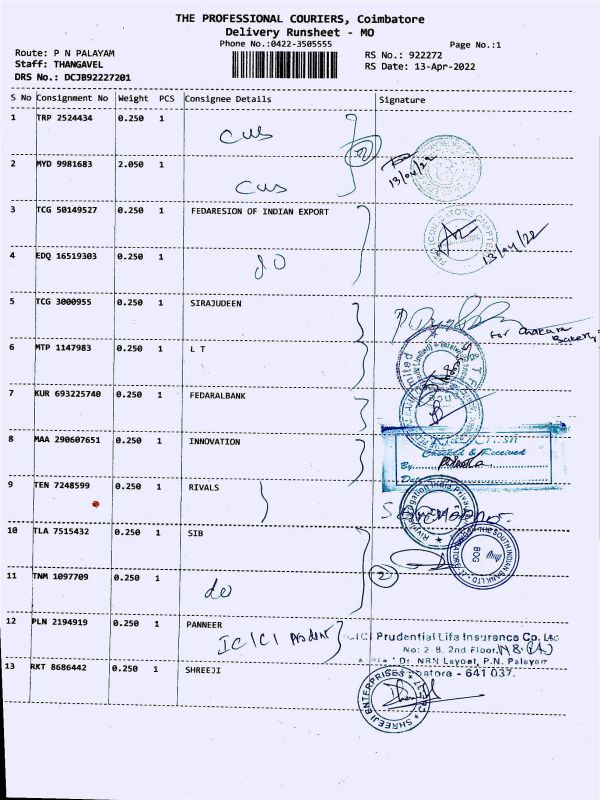 THE PROFESSIONAL COURIERS, Coimbatore
Delivery Runsheet - MO
Phone No.:0422-3505555
Page No.:1
Route: P N PALAYAM
Staff: THANGAVEL
DRS No.: DCJB92227201
RS No.: 922272
RS Date: 13-Apr-2022
S No Consignment No Weight PCS Consignee Details Signature
1 TRP 2524434 0.250 1
cus
2 MYD 9981683 2.050 1
cus
2
13/04/22
3 TCG 50149527 0.250 1 FEDARESION OF INDIAN EXPORT
13/04/22
4 EDQ 16519303 0.250 1
do
5 TCG 3000955 0.250 1 SIRAJUDEEN
for
6 MTP 1147983 0.250 1 L T
7 KUR 693225740 0.250 1 FEDARALBANK
8 MAA 290607651 0.250 1 INNOVATION
& Received
By
Date
9 TEN 7248599 0.250 1 RIVALS
10 TLA 7515432 0.250 1 SIB
THE SOUTH INDIAN BANK LTD
11 TNM 1097709 0.250 1
do
2
12 PLN 2194919 0.250 1 PANNEER
ICICI
Prudential Life Insurance Co. Ltd
No: 2-B, 2nd Floor,
Dr. NRN Layout, P.N. Palayam
- 641 037.
13 RKT 8686442 0.250 1 SHREEJI
SHREEJI ENTERPRISES